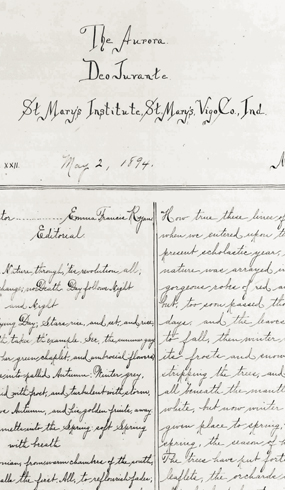 The Aurora.
Deo Juvante.
St. Mary's Institute, St. Mary's, Vigo Co., Ind.
XXII.
May 2, 1894.
tor .............. Emma Francis Ryan
Editorial.
Nature, through the revolution, all,
change; no Death. Day follows Night
and Night
Day; Stars rise, and set, and rise;
take example. See, the
green chaplet, and ambrosial flowers
Autumn. Winter grey,
with frost, and turbulent with storm,
Autumn, and his golden fruits, away
into the Spring soft Spring
with breath
from warm chambers of the south,
the first. All, to reflourish, fades;
How true these lines of
when we entered upon t
present scholastic year,
nature was arrayed i
gorgeous robes of red, a
but, too soon passed tho
days, and the leaves
to fall, then winter
its frosts and snow
stripping the trees, and
all beneath the mantl
white, but now winter
given place to spring;
spring, the season of h
The trees have put fort
leaflets, the orchards a